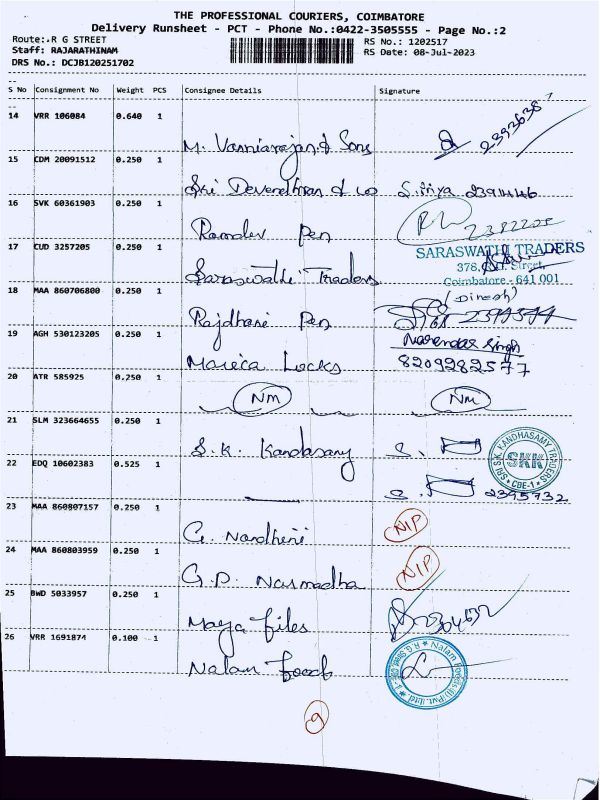 THE PROFESSIONAL COURIERS, COIMBATORE
Delivery Runsheet - PCT - Phone No.:0422-3505555 - Page No.:2
Route: R G STREET RS No.: 1202517
Staff: RAJARATHINAM RS Date: 08-Jul-2023
DRS No.: DCJB120251702
S No Consignment No Weight PCS Consignee Details Signature
14 VRR 106084 0.640 1
M. Vanniarajan & Sons 2393638
15 CDM 20091512 0.250 1
Sri Devendhran & co S. Priya
16 SVK 60361903 0.250 1
Ramdev Pen 2382205
17 CUD 3257205 0.250 1
SARASWATHI TRADERS
Saraswathi Traders 378, Street,
Coimbatore - 641 001
18 MAA 860706800 0.250 1 (Dinesh)
Rajdhani Pen
19 AGH 530123205 0.250 1 Narendar Singh
Mareca Locks 8209282577
20 ATR 585925 0.250 1
NM NM
21 SLM 323664655 0.250 1
S.K. Kandasamy S.
SRI S.K. KANDHASAMY TRADERS
SKK
* CBE-1 *
22 EDQ 10602383 0.525 1
S. 2395732
23 MAA 860807157 0.250 1
G. Nandhini NIP
24 MAA 860803959 0.250 1
G.D. Narmadha NIP
25 BWD 5033957 0.250 1
Maya Files
26 VRR 1691874 0.100 1
Nalam Foods
9